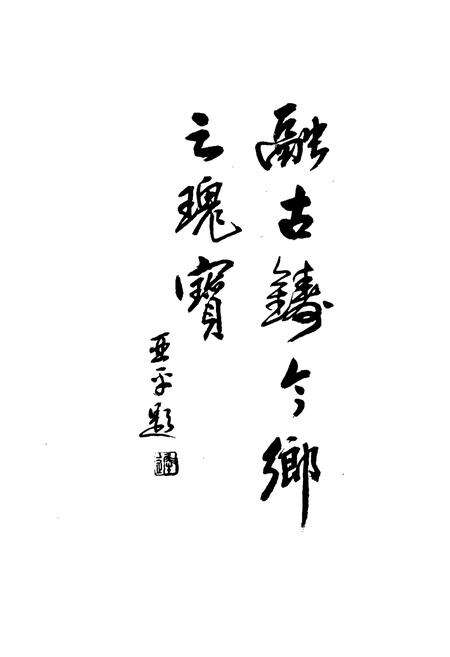 融古鑄今鄉
之瑰寶
亚平题